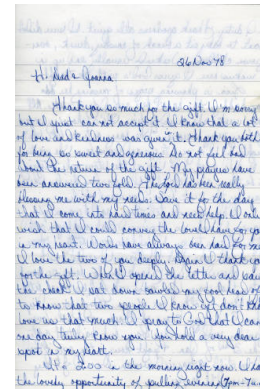 26 Nov 78
Hi Dad & Joanna
Thank you so much for the gift. I'm sorry
but I just can not accept it. I know that a lot
of love and kindness was given it. Thank you both
for being so sweet and generous. Do not feel bad
about the return of the gift. My prayers have
been answered two fold. The Lord has been really
blessing me with my needs. Save it for the day
that I come into hard times and need help. I only
wish that I could convey the love I have for you
in my heart. Words have always been hard for me
I love the two of you deeply. Again I thank you
for the gift. When I opened the letter and
the check I sat down
to know that two people I know yet don't
love us that much. I pray to God that I can
one day truly know you. You hold a very dear
spot in my heart.
It's 200 in the morning right now. I have
the lovely opportunity of pulling 7pm-7am